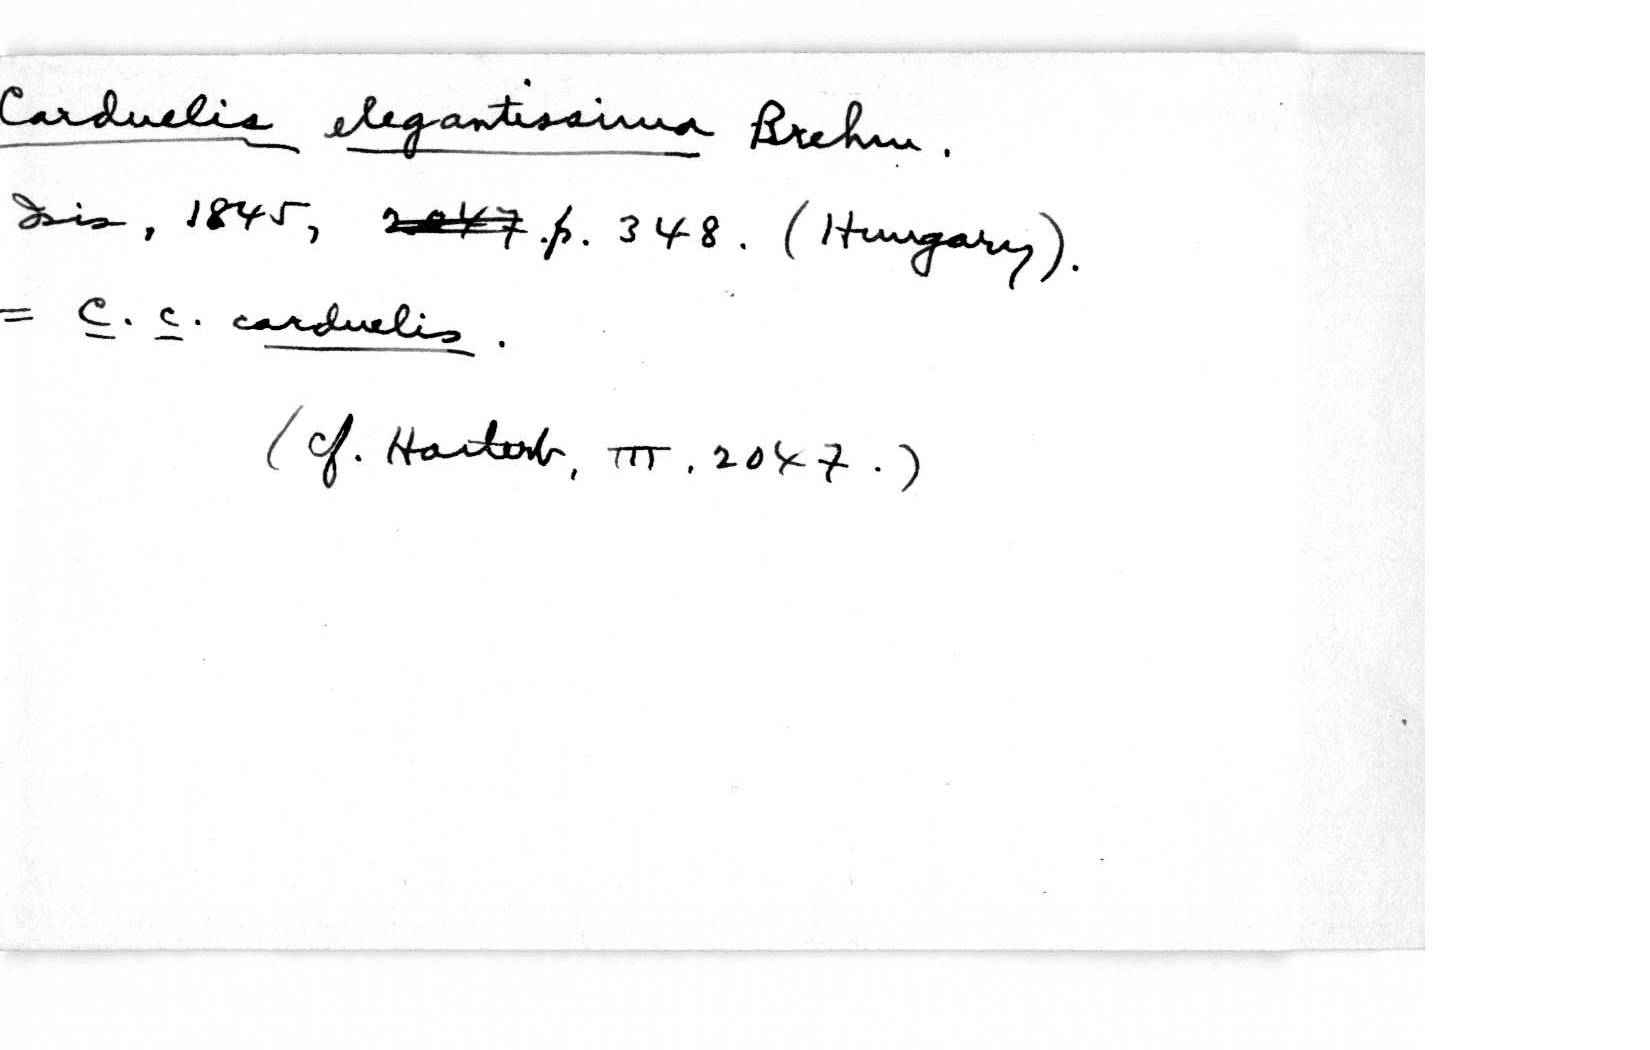 Carduelis elegantissima Brehm.
Isis, 1845, 2047 .p. 348. (Hungary).
= C. c. carduelis.
(cf. Hartert, III. 2047.)